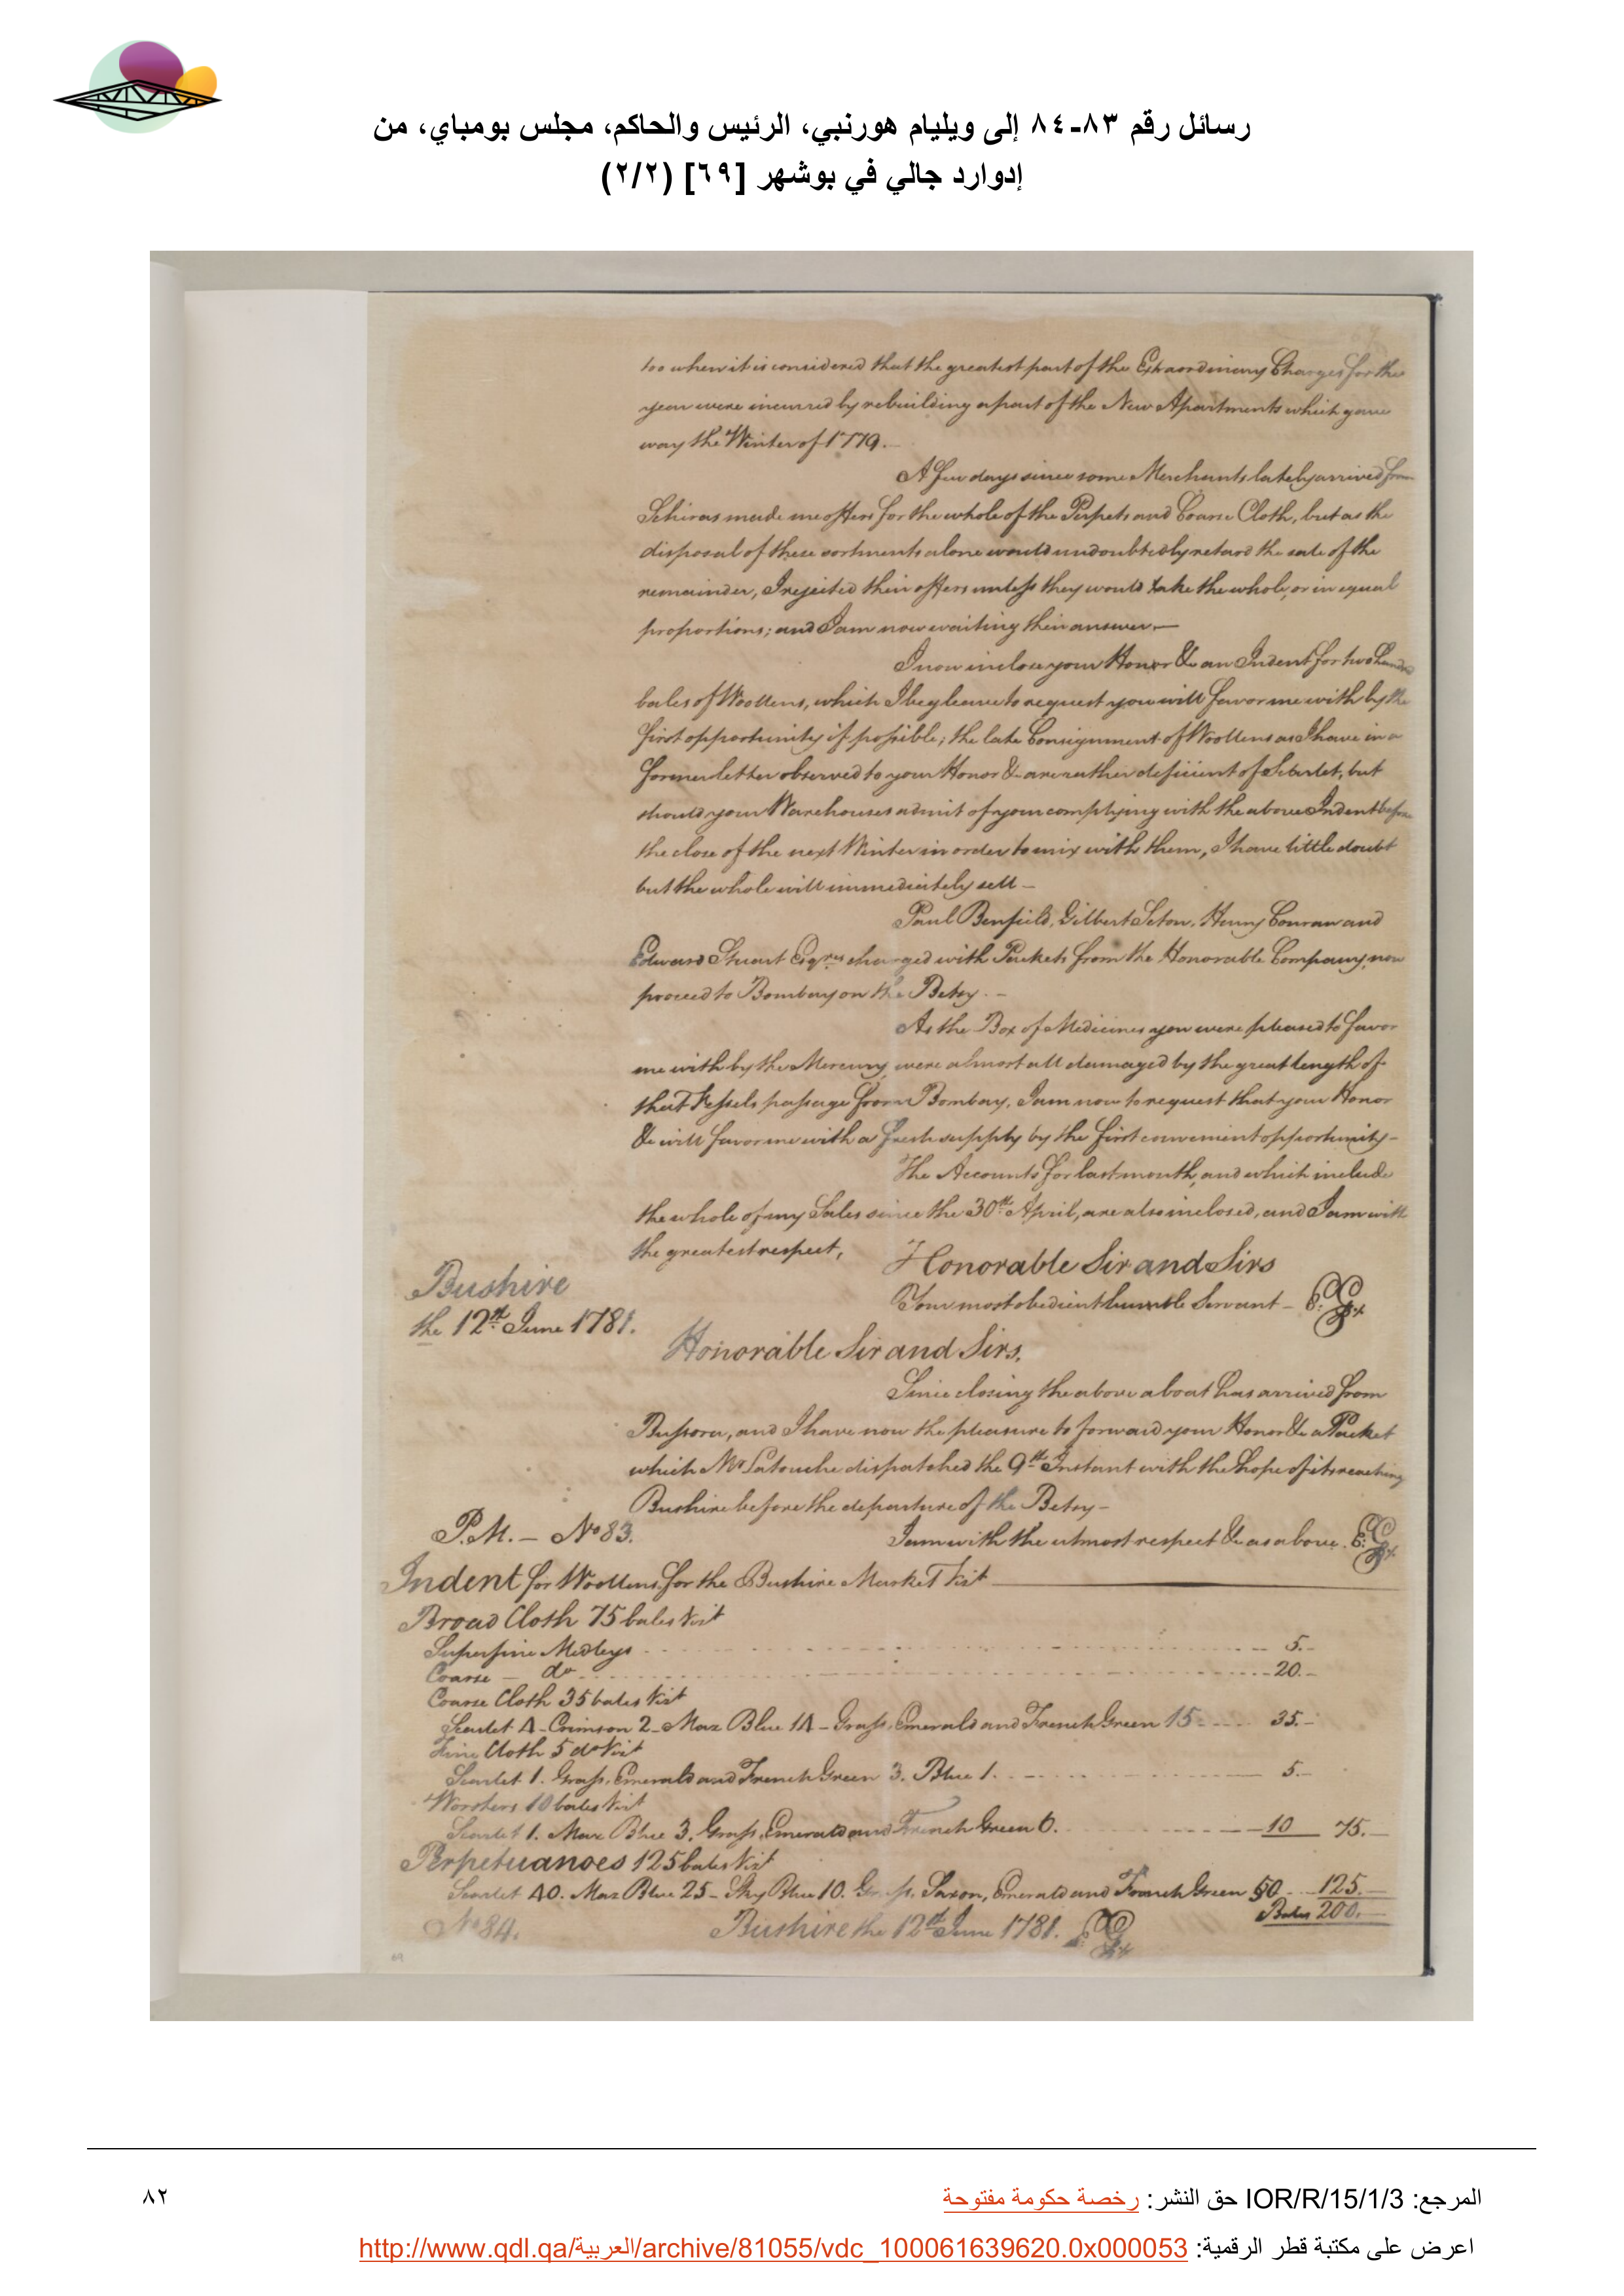 رسائل رقم ٨٣-٨٤ إلى ويليام هورنبي، الرئيس والحاكم، مجلس بومباي، من
إدوارد جالي في بوشهر [٦٩] (٢/٢)
too when it is considered that the greatest part of the Extraordinary Charges for the
year were incurred by rebuilding a part of the New Apartments which gave
way the Winter of 1779.
A few days since some Merchants lately arrived from
Schiras made me offers for the whole of the Perpets and Coarse Cloth, but as the
disposal of these sortments alone would undoubtedly retard the sale of the
remainder, I rejected their offers unless they would take the whole, or in equal
proportions; and I am now waiting their answer.—
I now inclose your Honor &c an Indent for two Hundred
bales of Woollens, which I beg leave to request you will favor me with by the
first opportunity if possible; the late Consignment of Woollens as I have in a
former letter observed to your Honor &c are rather deficient of Scarlet, but
should your Warehouses admit of your complying with the above Indent before
the close of the next Winter in order to mix with them, I have little doubt
but the whole will immediately sell —
Paul Benfield, Gilbert Seton, Henry Conran and
Edward Stuart Esqres charged with Packets from the Honorable Company, now
proceed to Bombay on the Betsy. —
As the Box of Medicines you were pleased to favor
me with by the Mercury were almost all damaged by the great length of
that Vessels passage from Bombay, I am now to request that your Honor
&c will favor me with a fresh supply by the first convenient opportunity —
The Accounts for last month, and which include
the whole of my Sales since the 30th April, are also inclosed, and I am with
the greatest respect,
Honorable Sir and Sirs
Your most obedient humble Servant — E:G:
Bushire
the 12th June 1781.
Honorable Sir and Sirs,
Since closing the above a boat has arrived from
Bussora, and I have now the pleasure to forward your Honor &c a Packet
which Mr Latouche dispatched the 9th Instant with the hope of its reaching
Bushire before the departure of the Betsy —
I am with the utmost respect &c as above. E:G:
P.M. — No 83.
Indent for Woollens for the Bushire Market Vizt
Broad Cloth 75 bales Vizt
Superfine Medleys 5.—
Coarse — do 20.—
Coarse Cloth 35 bales Vizt
Scarlet 4 — Crimson 2 — Maz Blue 14 — Grass, Emerald and French Green 15 35.—
Fine Cloth 5 do Vizt
Scarlet 1. Grass, Emerald and French Green 3. Blue 1. 5.—
Worsters 10 bales Vizt
Scarlet 1. Maz Blue 3. Grass, Emerald and French Green 6. 10 75.—
Perpetuanoes 125 bales Vizt
Scarlet 40. Maz Blue 25 — Sky Blue 10. Grass, Saxon, Emerald and French Green 50 125.—
Bales 200.—
No 84.
Bushire the 12th June 1781. E:G:
69
المرجع: IOR/R/15/1/3 حق النشر: رخصة حكومة مفتوحة
٨٢
اعرض على مكتبة قطر الرقمية: http://www.qdl.qa/العربية/archive/81055/vdc_100061639620.0x000053